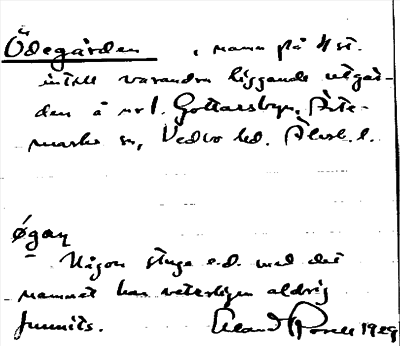 Ödegården, namn på 4 st.
intill varandra liggande utgår-
den å nr 1. Gottarsbyn, Årte-
marks sn, Vedbo hd. Älvsb. l.
Øgan
Någon stuga e.d. med det
namnet har veterligen aldrig
funnits. Erland Rosell 1929